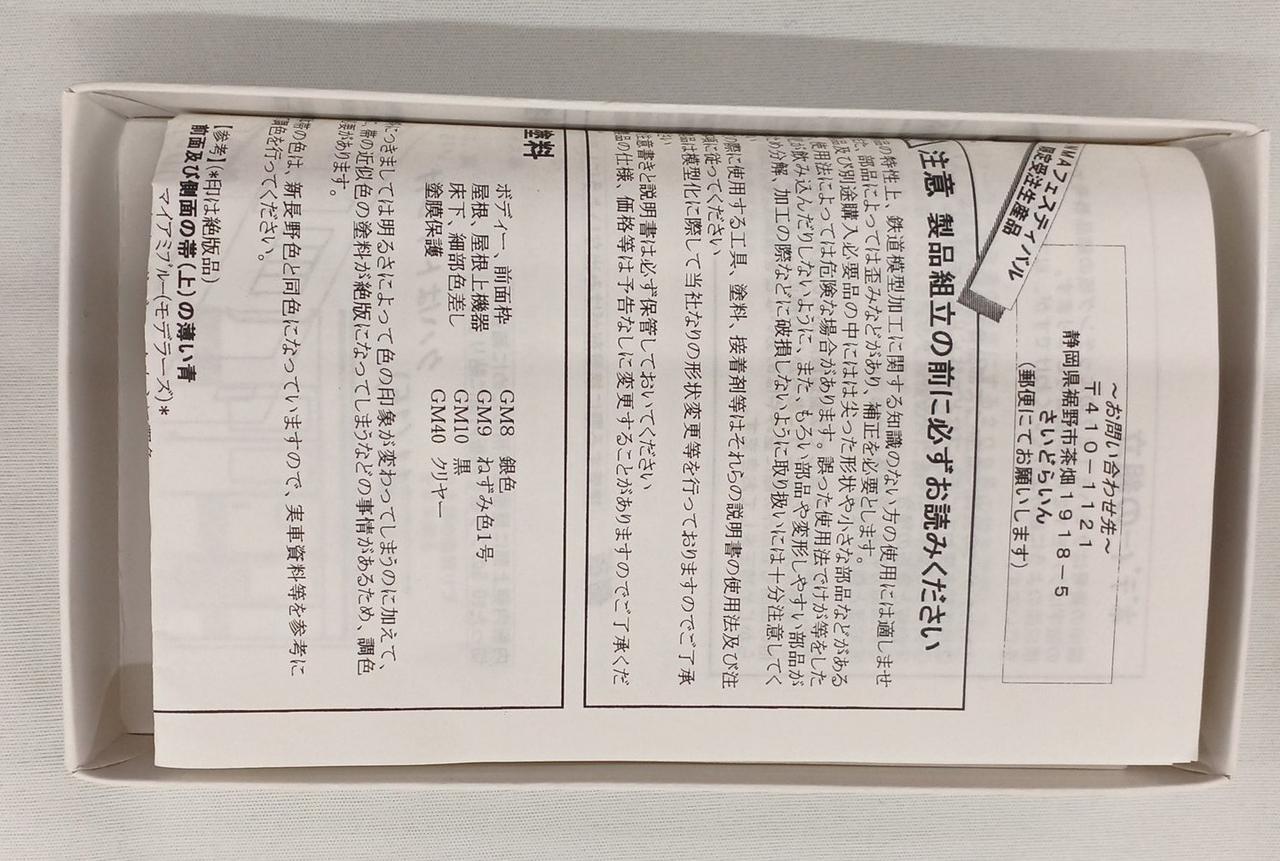 MAフェスティバル
限定受注生産品
～お問い合わせ先～
〒410－1121
静岡県裾野市茶畑1918－5
さいどらいん
(郵便にてお願いします)
注意 製品組立の前に必ずお読みください
の特性上、鉄道模型加工に関する知識のない方の使用には適しませ
、部品によっては歪みなどがあり、補正を必要とします。
及び別途購入必要品の中にはは尖った形状や小さな部品などがある
使用法によっては危険な場合があります。誤った使用法でけが等をした
が飲み込んだりしないように、また、もろい部品や変形しやすい部品が
め分解、加工の際などに破損しないように取り扱いには十分注意してく
の際に使用する工具、塗料、接着剤等はそれらの説明書の使用法及び注
項に従ってください
品は模型化に際して当社なりの形状変更等を行っておりますのでご了承
い
注意書きと説明書は必ず保管しておいてください
品の仕様、価格等は予告なしに変更することがありますのでご了承くだ
塗料
ボディー、前面枠 GM8 銀色
屋根、屋根上機器 GM9 ねずみ色1号
床下、細部色差し GM10 黒
塗膜保護 GM40 クリヤー
につきましては明るさによって色の印象が変わってしまうのに加えて、
、帯の近似色の塗料が絶版になってしまうなどの事情があるため、調色
要があります。
帯の色は、新長野色と同色になっていますので、実車資料等を参考に
調色を行ってください。
【参考】(*印は絶版品)
前面及び側面の帯(上)の薄い青
マイアミブルー(モデラーズ)*